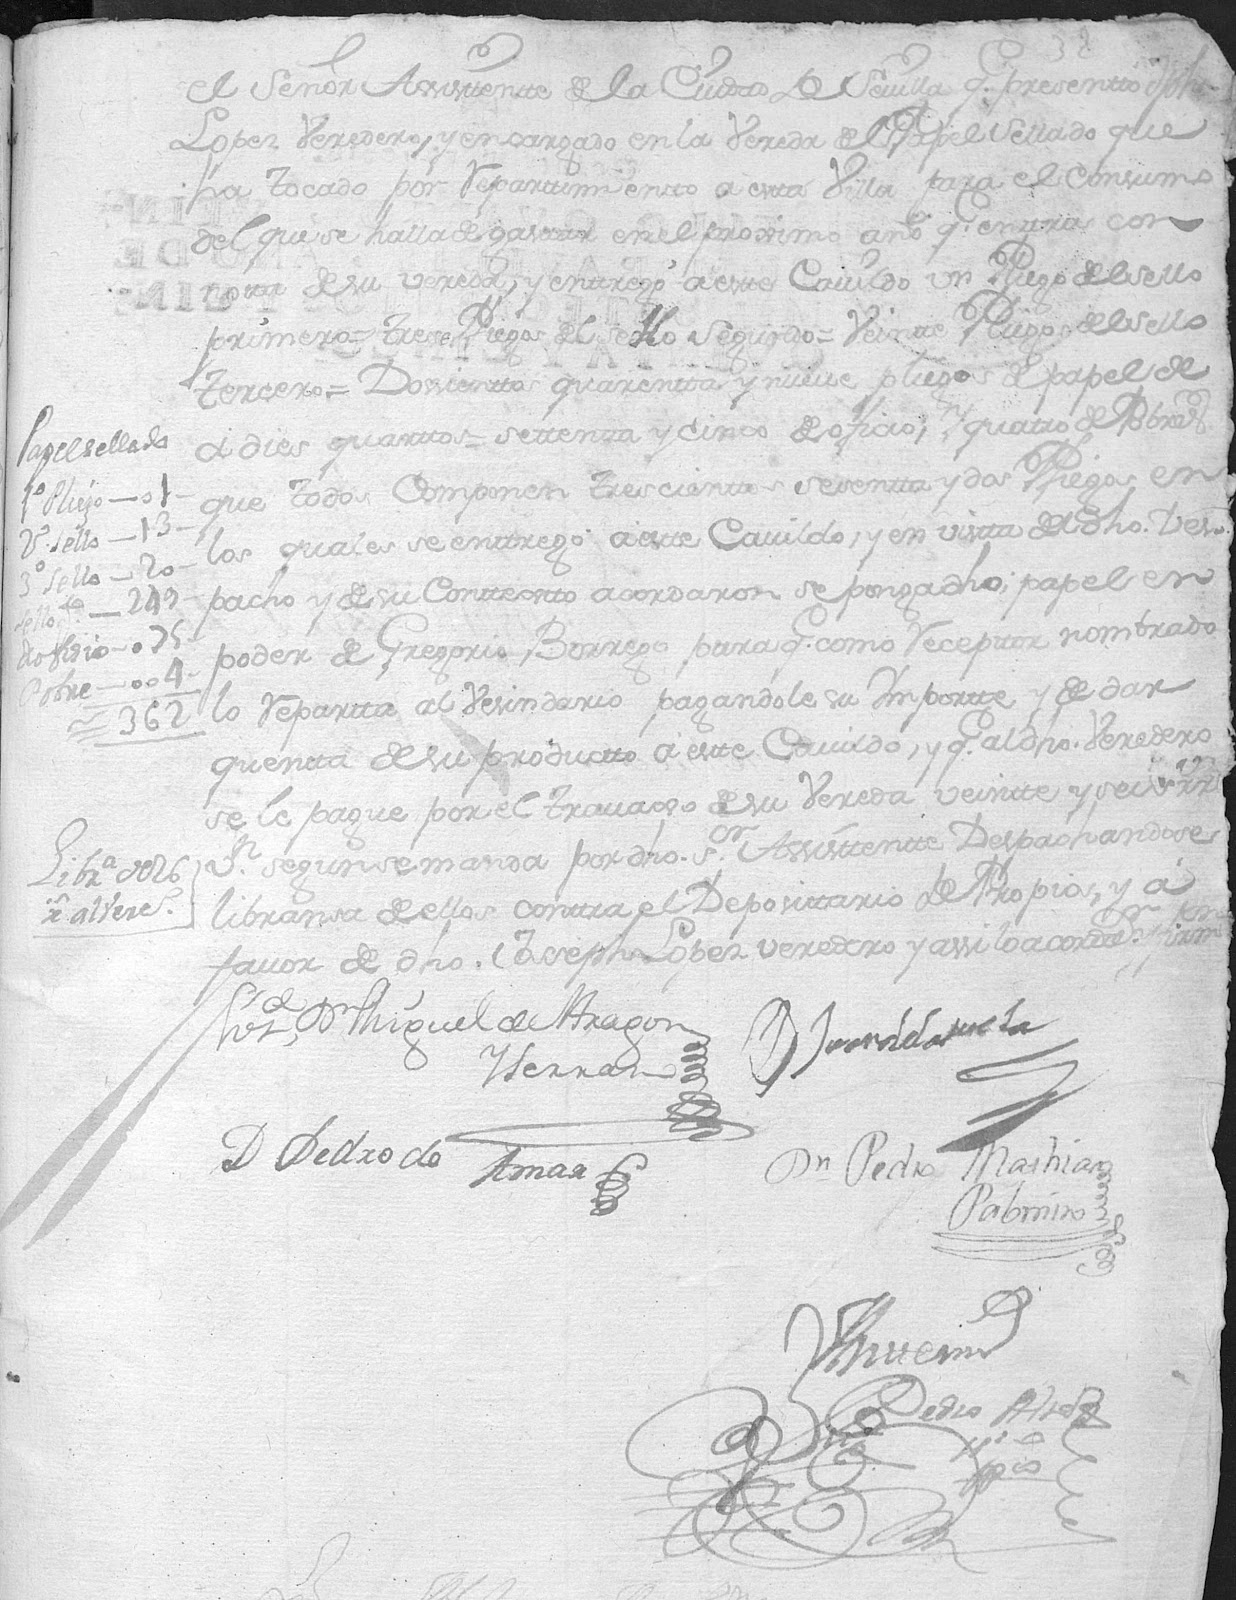 38
el Señor Assistente de la Ciudad de Sevilla q. presentto Jph
Lopez Veredero, y encargado en la Vereda del Papel sellado que
ha tocado por Repartimiento a esta Villa para el Consumo
del que se halla de gastar en el proximo año q. entra con
de su vereda, y entregó a este Cavildo un Pliego del sello
primero = trese Pliegos del sello segundo = Veinte Pliegos del sello
tercero = Dosientos quarentta y nueve pliegos de papel de
a dies quarttos = settentta y cinco de oficio, y quatro de Pobres
que todos Componen trescientos sesentta y dos Pliegos en
los quales se entregó a este Cavildo, y en vista del dho. Des
pacho y de su Contexto acordaron se ponga dho. papel en
poder de Gregorio Borrego para q. como Receptor nombrado
lo Repartta al Vesindario pagandole su Importte y de dar
quentta de su productto a este Cavildo, y q. al dho. Veredero
se le pague por el travaxo de su Vereda veintte y seis rr.
Vn. segun se manda por dho. Sor. Assistente Despachandose
libransa de ellos conttra el Deposittario de Propios, y a
favor de dho. Joseph Lopez veredero y assi lo acordaron y firmn
Papel sellado
1º Pliego — 01 —
2º sello — 13 —
3º sello — 20 —
sello 4º — 249 —
de ofisio — 075
Pobre — 004 —
362
Libra. de 26
rr. al Vere.
Lizdo. Dn Miguel de Aragon
y Serrano
D Pedro de
Amaa
Dn Pedro Mathias
Palomino
Antte mi
Pedro